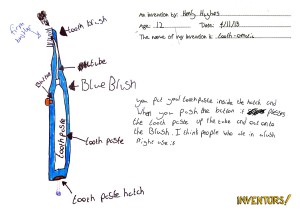 An invention by: Henry Hughes
Age: 12 Date: 4/11/13
The name of my invention is: tooth-omatic
firm bristles
tooth brush
tube
Button
Blue Brush
tooth paste
tooth paste
tooth paste hatch
you put your toothpaste inside the hatch and
when you push the button it presses
the tooth paste up the tube and out onto
the Brush. I think people who are in a rush
might use it
INVENTORS!